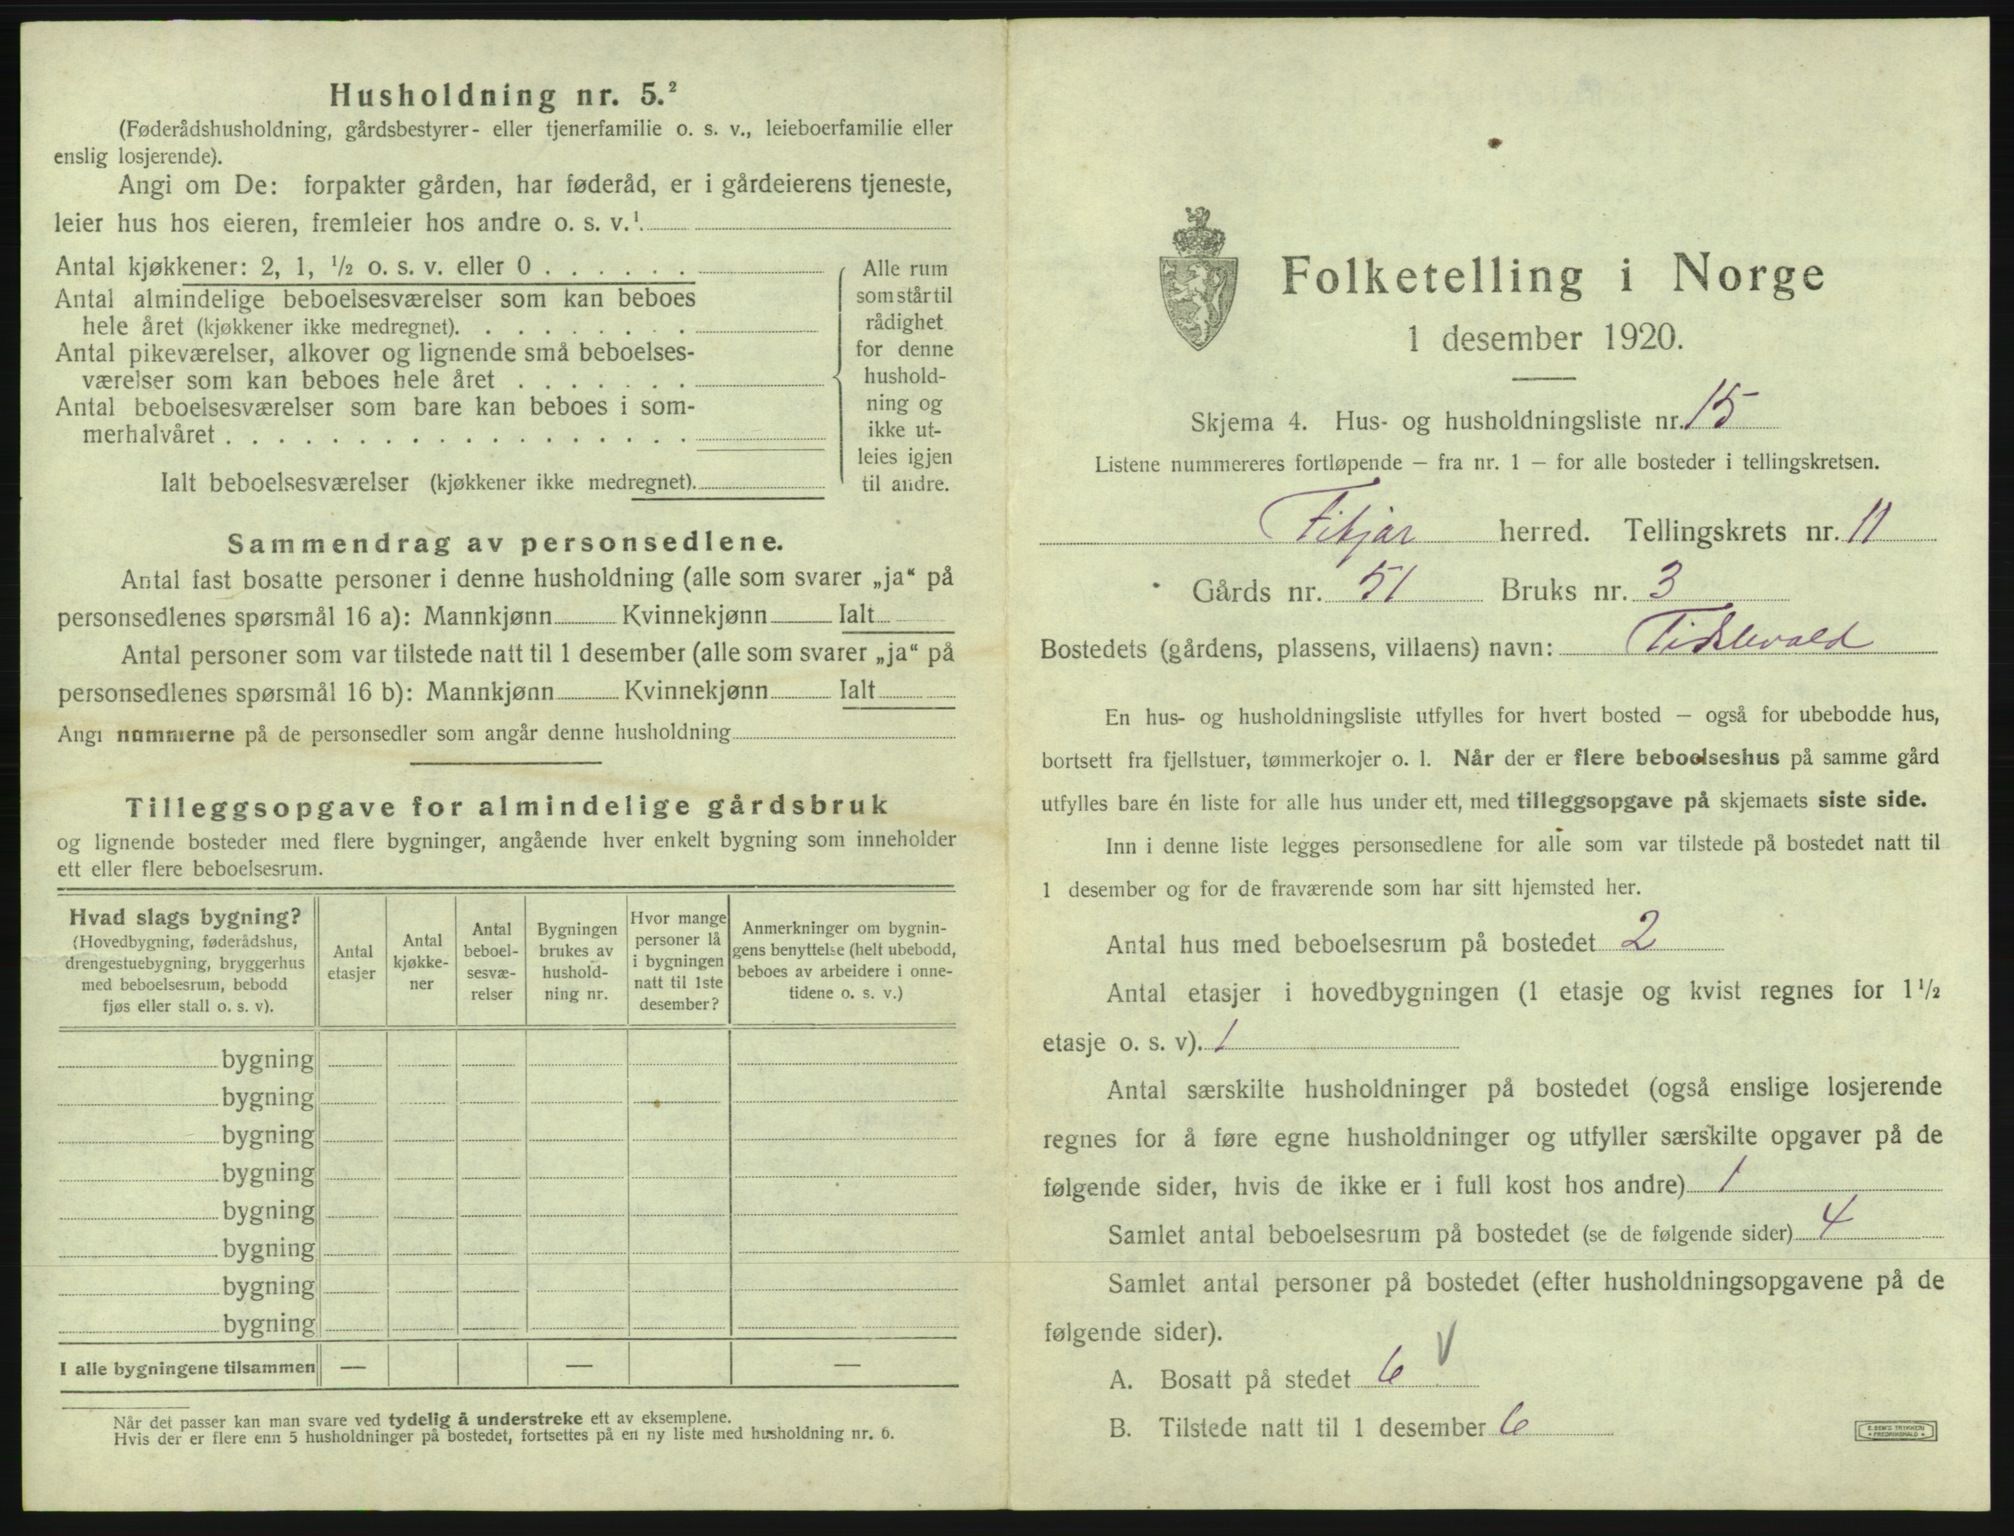 Husholdning nr. 5.²
(Føderådshusholdning, gårdsbestyrer- eller tjenerfamilie o. s. v., leieboerfamilie eller
enslig losjerende).
Angi om De: forpakter gården, har føderåd, er i gårdeierens tjeneste,
leier hus hos eieren, fremleier hos andre o. s. v.¹
Antal kjøkkener: 2, 1, ½ o. s. v. eller 0 . . . . . .
Antal almindelige beboelsesværelser som kan beboes
hele året (kjøkkener ikke medregnet). . . . . . . . .
Antal pikeværelser, alkover og lignende små beboelses-
værelser som kan beboes hele året . . . . . . .
Antal beboelsesværelser som bare kan beboes i som-
merhalvåret . . . . . . . . . . . . . . . . . .
Ialt beboelsesværelser (kjøkkener ikke medregnet).
Alle rum
som står til
rådighet
for denne
hushold-
ning og
ikke ut-
leies igjen
til andre.
Sammendrag av personsedlene.
Antal fast bosatte personer i denne husholdning (alle som svarer „ja“ på
personsedlenes spørsmål 16 a): Mannkjønn Kvinnekjønn Ialt
Antal personer som var tilstede natt til 1 desember (alle som svarer „ja“ på
personsedlenes spørsmål 16 b): Mannkjønn Kvinnekjønn Ialt
Angi nummerne på de personsedler som angår denne husholdning
Tilleggsopgave for almindelige gårdsbruk
og lignende bosteder med flere bygninger, angående hver enkelt bygning som inneholder
ett eller flere beboelsesrum.
Hvad slags bygning?
(Hovedbygning, føderådshus,
drengestuebygning, bryggerhus
med beboelsesrum, bebodd
fjøs eller stall o. s. v).
Antal
etasjer
Antal
kjøkke-
ner
Antal
beboel-
sesvæ-
relser
Bygningen
brukes av
hushold-
ning nr.
Hvor mange
personer lå
i bygningen
natt til 1ste
desember?
Anmerkninger om bygnin-
gens benyttelse (helt ubebodd,
beboes av arbeidere i onne-
tidene o. s. v.)
bygning
bygning
bygning
bygning
bygning
bygning
bygning
bygning
I alle bygningene tilsammen — — —
Når det passer kan man svare ved tydelig å understreke ett av eksemplene.
Hvis der er flere enn 5 husholdninger på bostedet, fortsettes på en ny liste med husholdning nr. 6.
Folketelling i Norge
1 desember 1920.
Skjema 4. Hus- og husholdningsliste nr. 15
Listene nummereres fortløpende — fra nr. 1 — for alle bosteder i tellingskretsen.
Fitjar herred. Tellingskrets nr. 11
Gårds nr. 51 Bruks nr. 3
Bostedets (gårdens, plassens, villaens) navn:
En hus- og husholdningsliste utfylles for hvert bosted — også for ubebodde hus,
bortsett fra fjellstuer, tømmerkojer o. l. Når der er flere beboelseshus på samme gård
utfylles bare én liste for alle hus under ett, med tilleggsopgave på skjemaets siste side.
Inn i denne liste legges personsedlene for alle som var tilstede på bostedet natt til
1 desember og for de fraværende som har sitt hjemsted her.
Antal hus med beboelsesrum på bostedet 2
Antal etasjer i hovedbygningen (1 etasje og kvist regnes for 1½
etasje o. s. v). 1
Antal særskilte husholdninger på bostedet (også enslige losjerende
regnes for å føre egne husholdninger og utfyller særskilte opgaver på de
følgende sider, hvis de ikke er i full kost hos andre) 1
Samlet antal beboelsesrum på bostedet (se de følgende sider) 4
Samlet antal personer på bostedet (efter husholdningsopgavene på de
følgende sider).
A. Bosatt på stedet 6 V
B. Tilstede natt til 1 desember 6